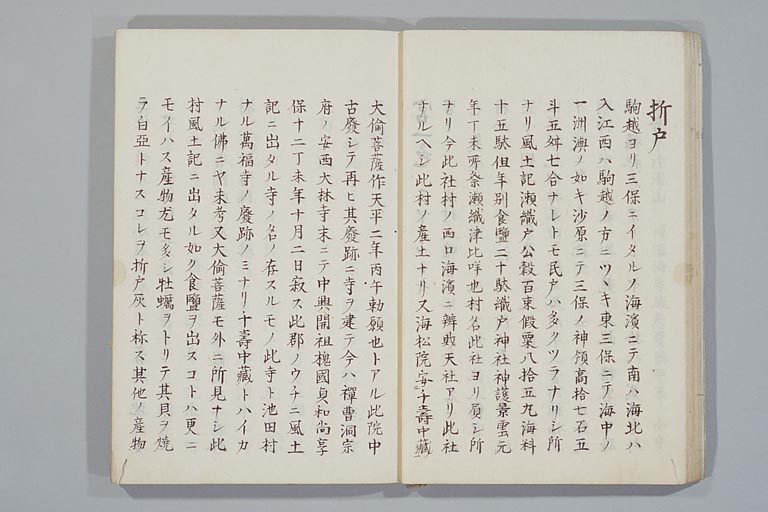 折戸
駒越ヨリ三保ニイタルノ海濱ニテ南ハ海北ハ
入江西ハ駒越ノ方ニツヽキ東三保ニテ海中ノ
一洲澳ノ如キ沙原ニテ三保ノ神領高拾七石五
斗五舛七合ナレトモ民戸ハ多クツラナリシ所
ナリ風土記瀬織戸公穀百束假粟八拾五丸海科
十五駄但年別食鹽二十駄織戸神社神護景雲元
年丁未所祭瀬織津比咩也村名此社ヨリ負シ所
ナリ今此社村ノ西口海濱ニ辨戝天社アリ此社
ナルヘシ此村ノ産土ナリ又海松院安千壽中藏
大偷菩薩作天平二年丙午勅願也トアル此院中
古廢シテ再ヒ其廢跡ニ寺ヲ建テ今ハ禪曹洞宗
府ノ安西大林寺末ニテ中興開祖槐國貞和尚享
保十二丁未年十月二日寂ス此郡ノウチニ風土
記ニ出タル寺ノ名ノ存スルモノ此寺ト池田村
ナル萬福寺ノ廢跡ノミナリ千壽中藏トハイカ
ナル佛ニヤ未考又大偷菩薩モ外ニ所見ナシ此
村風土記ニ出タル如ク食鹽ヲ出スコトハ更ニ
モイハス産物尤モ多シ牡蠣ヲトリテ其貝ヲ焼
ヲ白亞トナスコレヲ折戸灰ト称ス其他ノ産物